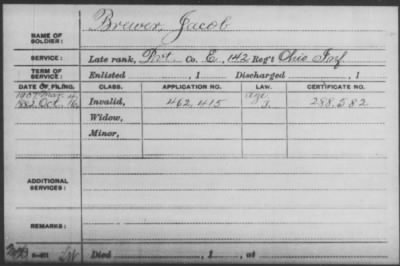 NAME OF SOLDIER: Brewer, Jacob
SERVICE: Late rank, Pvt Co. E, 142 Reg't Ohio Inf
TERM OF SERVICE: Enlisted , 1 Discharged , 1
DATE OF FILING. CLASS. APPLICATION NO. LAW. CERTIFICATE NO.
1907 Mar 4, age
1882, Oct. 16 Invalid, 462,415 288,582
Widow,
Minor,
ADDITIONAL SERVICES:
REMARKS:
Died , 1 , at